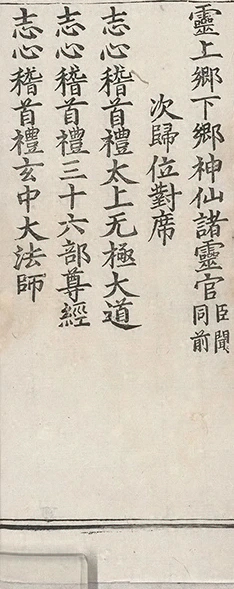 靈上鄉下鄉神仙諸靈官臣聞同前
次歸位對席
志心稽首禮太上无極大道
志心稽首禮三十六部尊經
志心稽首禮玄中大法師